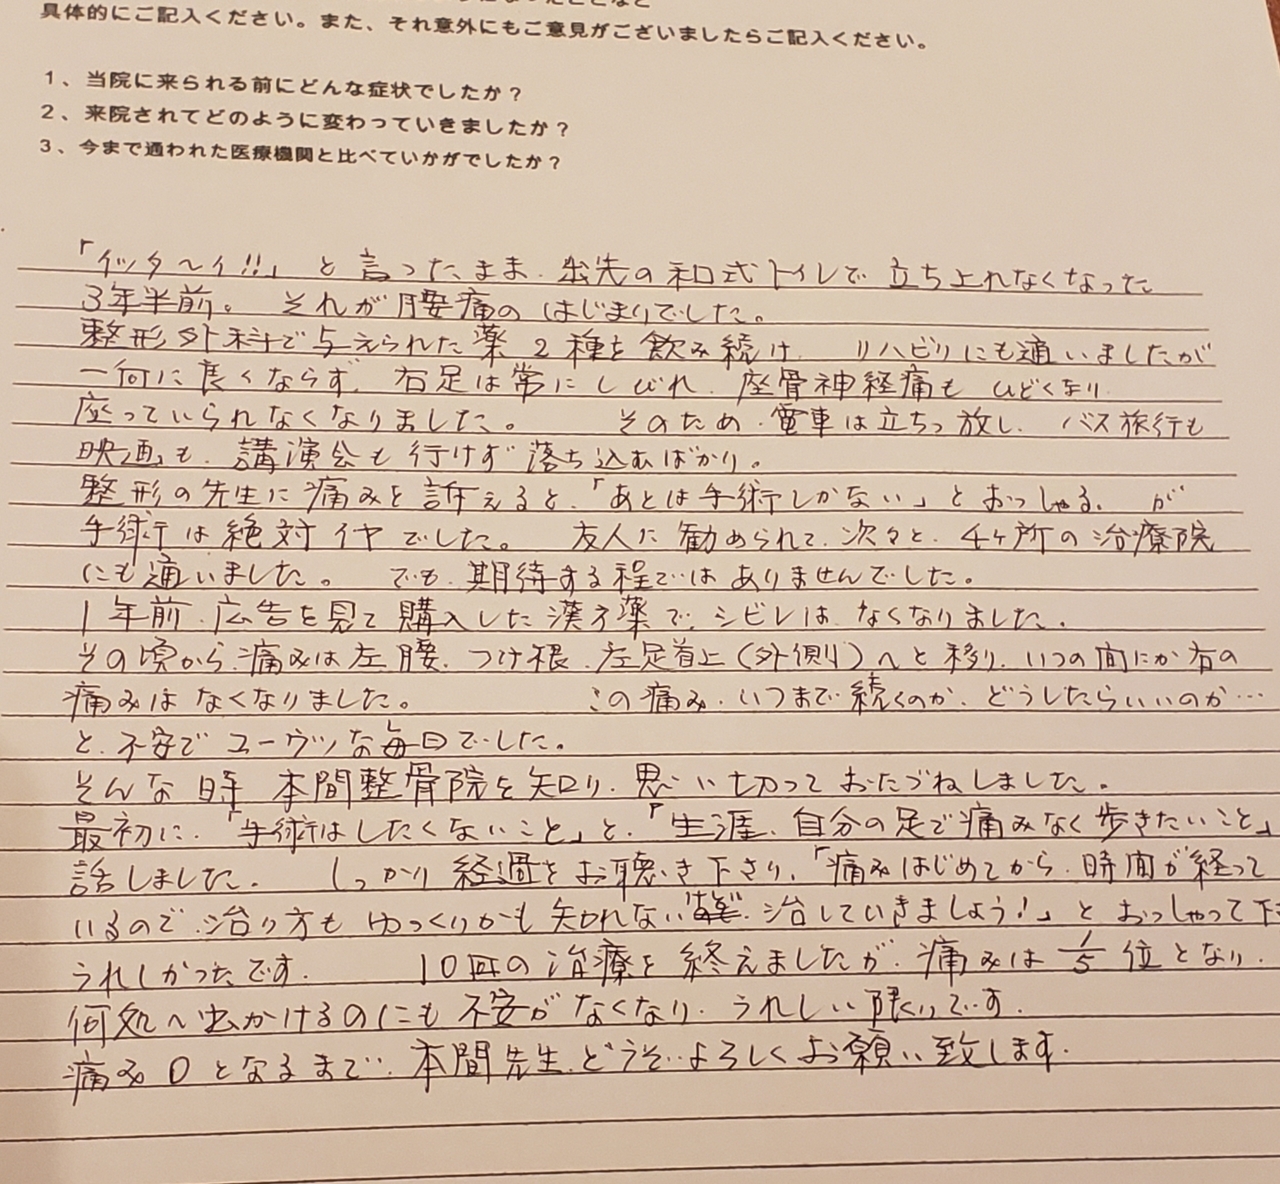 具体的にご記入ください。また、それ意外にもご意見がございましたらご記入ください。
1、当院に来られる前にどんな症状でしたか？
2、来院されてどのように変わっていきましたか？
3、今まで通われた医療機関と比べていかがでしたか？
「イッタ～イ!!」と言ったまま、出先の和式トイレで立ち上れなくなった
3年半前。それが腰痛のはじまりでした。
整形外科で与えられた薬2種を飲み続け、リハビリにも通いましたが
一向に良くならず、右足は常にしびれ、座骨神経痛もひどくなり
座っていられなくなりました。そのため、電車は立ちっ放し、バス旅行も
映画も、講演会も行けず落ち込むばかり。
整形の先生に痛みを訴えると、「あとは手術しかない」とおっしゃる、が
手術は絶対イヤでした。友人に勧められて、次々と、4ヶ所の治療院
にも通いました。でも、期待する程ではありませんでした。
1年前、広告を見て購入した漢方薬で、シビレはなくなりました。
その頃から、痛みは左腰、つけ根、左足首上（外側）へと移り、いつの間にか右の
痛みはなくなりました。この痛み、いつまで続くのか、どうしたらいいのか…
と、不安でユーウツな毎日でした。
そんな時 本間整骨院を知り、思い切っておたづねしました。
最初に、「手術はしたくないこと」と、「生涯、自分の足で痛みなく歩きたいこと」
話しました。しっかり経過をお聴き下さり、「痛みはじめてから、時間が経って
いるので、治り方もゆっくりかも知れない、治していきましょう！」とおっしゃって下
うれしかったです。10回の治療を終えましたが、痛みは1/5位となり、
何処へ出かけるのにも不安がなくなり、うれしい限りです。
痛み0となるまで、本間先生、どうぞよろしくお願い致します。